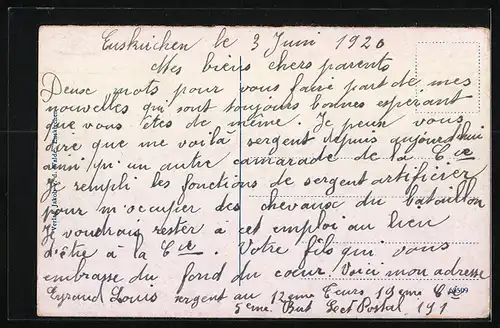 Euskirchen le 3 Juni 1920
Mes biens chers parents
Deux mots pour vous faire part de mes
nouvelles qui sont toujours bonnes esperant
que vous êtes de même. Je peux vous
dire que me voilà sergent depuis aujourd'hui
ainsi qu'un autre camarade de la Cie
Je rempli les fonctions de sergent artificier
pour m'occuper des chevaux du bataillon
Je voudrais rester à cet emploi au lieu
d'être à la Cie. Votre fils qui vous
embrasse du fond du cœur. Voici mon adresse
Eyraud Louis sergent au 12eme 19eme Cie
5eme Bat Sect Postal 191